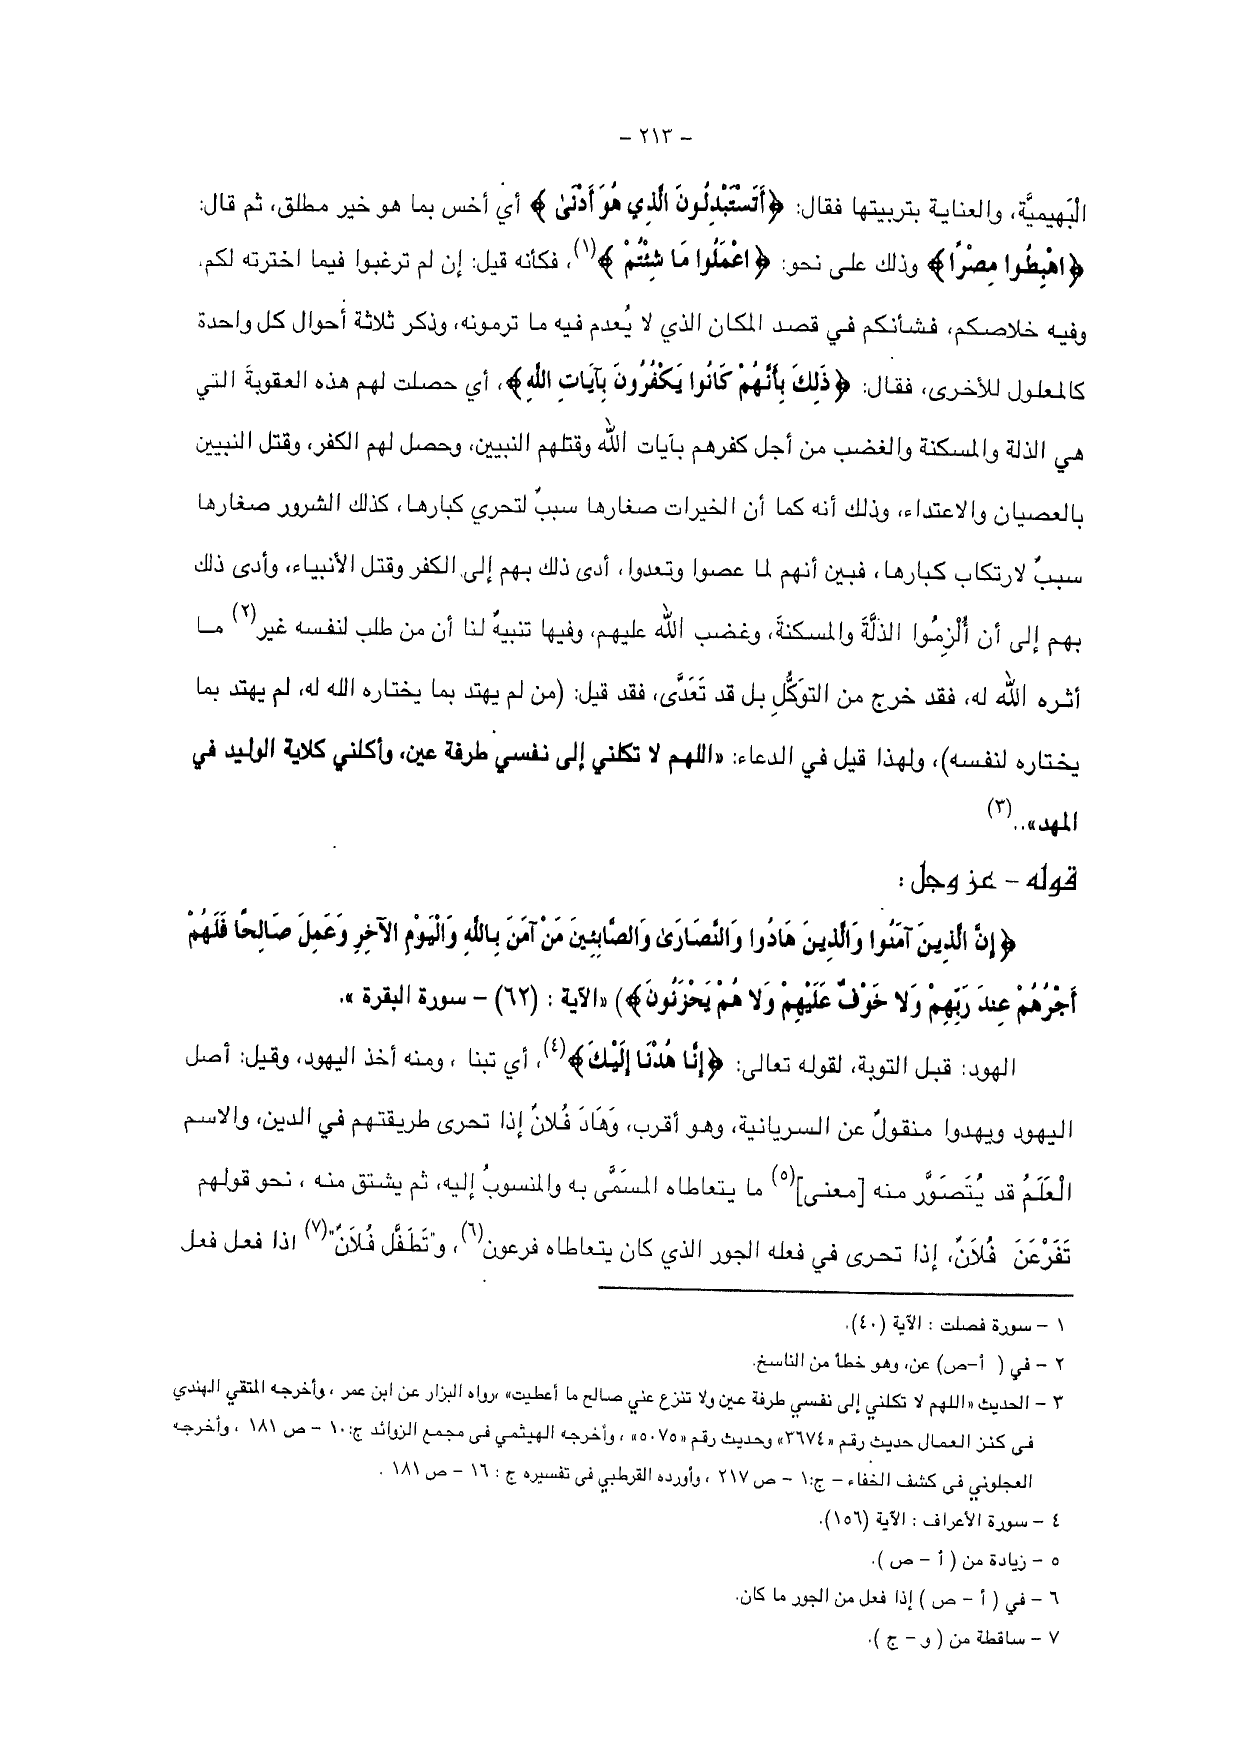 - ٢١٣ -
البَهِيميَّة، والعناية بتربيتها فقال: ﴿أَتَسْتَبْدِلُونَ الَّذِي هُوَ أَدْنَىٰ﴾ أي أخس بما هو خير مطلق، ثم قال:
﴿اهْبِطُوا مِصْرًا﴾ وذلك على نحو: ﴿اعْمَلُوا مَا شِئْتُمْ﴾(١)، فكأنه قيل: إن لم ترغبوا فيما اخترته لكم،
وفيه خلاصكم، فشأنكم في قصد المكان الذي لا يُعدم فيه ما ترمونه، وذكر ثلاثة أحوال كل واحدة
كالمعلول للأخرى، فقال: ﴿ذَلِكَ بِأَنَّهُمْ كَانُوا يَكْفُرُونَ بِآيَاتِ اللَّهِ﴾، أي حصلت لهم هذه العقوبةَ التي
هي الذلة والمسكنة والغضب من أجل كفرهم بآيات الله وقتلهم النبيين، وحصل لهم الكفر، وقتل النبيين
بالعصيان والاعتداء، وذلك أنه كما أن الخيرات صغارها سببٌ لتحري كبارها، كذلك الشرور صغارها
سببٌ لارتكاب كبارها، فبين أنهم لما عصوا وتعدوا، أدى ذلك بهم إلى الكفر وقتل الأنبياء، وأدى ذلك
بهم إلى أن أُلْزِمُوا الذلَّةَ والمسكنةَ، وغضب الله عليهم، وفيها تنبيهٌ لنا أن من طلب لنفسه غير(٢) ما
أثره الله له، فقد خرج من التوَكُّلِ بل قد تَعَدَّى، فقد قيل: (من لم يهتد بما يختاره الله له، لم يهتد بما
يختاره لنفسه)، ولهذا قيل في الدعاء: «اللهم لا تكلني إلى نفسي طرفة عين، وأكلني كلاية الوليد في
المهد»..(٣)
قوله - عز وجل :
﴿إِنَّ الَّذِينَ آمَنُوا وَالَّذِينَ هَادُوا وَالنَّصَارَىٰ وَالصَّابِئِينَ مَنْ آمَنَ بِاللَّهِ وَالْيَوْمِ الآخِرِ وَعَمِلَ صَالِحًا فَلَهُمْ
أَجْرُهُمْ عِندَ رَبِّهِمْ وَلا خَوْفٌ عَلَيْهِمْ وَلا هُمْ يَحْزَنُونَ﴾) «الآية : (٦٢) - سورة البقرة ».
الهود: قبل التوبة، لقوله تعالى: ﴿إِنَّا هُدْنَا إِلَيْكَ﴾(٤)، أي تبنا ، ومنه أخذ اليهود، وقيل: أصل
اليهود ويهدوا منقولٌ عن السريانية، وهو أقرب، وَهَادَ فُلانٌ إذا تحرى طريقتهم في الدين، والاسم
الْعَلَمُ قد يُتَصَوَّر منه [معنى](٥) ما يتعاطاه المسَمَّى به والمنسوبُ إليه، ثم يشتق منه ، نحو قولهم
تَفَرْعَنَ فُلاَنٌ، إذا تحرى في فعله الجور الذي كان يتعاطاه فرعون(٦)، و"تَطَفَّل فُلاَنٌ"(٧) اذا فعل فعل
١ - سورة فصلت : الآية (٤٠).
٢ - في ( أ-ص) عن، وهو خطأ من الناسخ.
٣ - الحديث «اللهم لا تكلني إلى نفسي طرفة عين ولا تنزع عني صالح ما أعطيت» ،رواه البزار عن ابن عمر ، وأخرجه المتقي الهندي
فى كنز العمال حديث رقم «٣٦٧٤» وحديث رقم «٥٠٧٥» ، وأخرجه الهيثمي فى مجمع الزوائد ج:١٠ - ص ١٨١ ، وأخرجه
العجلوني فى كشف الخفاء - ج:١ - ص ٢١٧ ، وأورده القرطبي في تفسيره ج : ١٦ - ص ١٨١ .
٤ - سورة الأعراف : الآية (١٥٦).
٥ - زيادة من ( أ - ص ).
٦ - في ( أ - ص ) إذا فعل من الجور ما كان.
٧ - ساقطة من ( و - ج ).